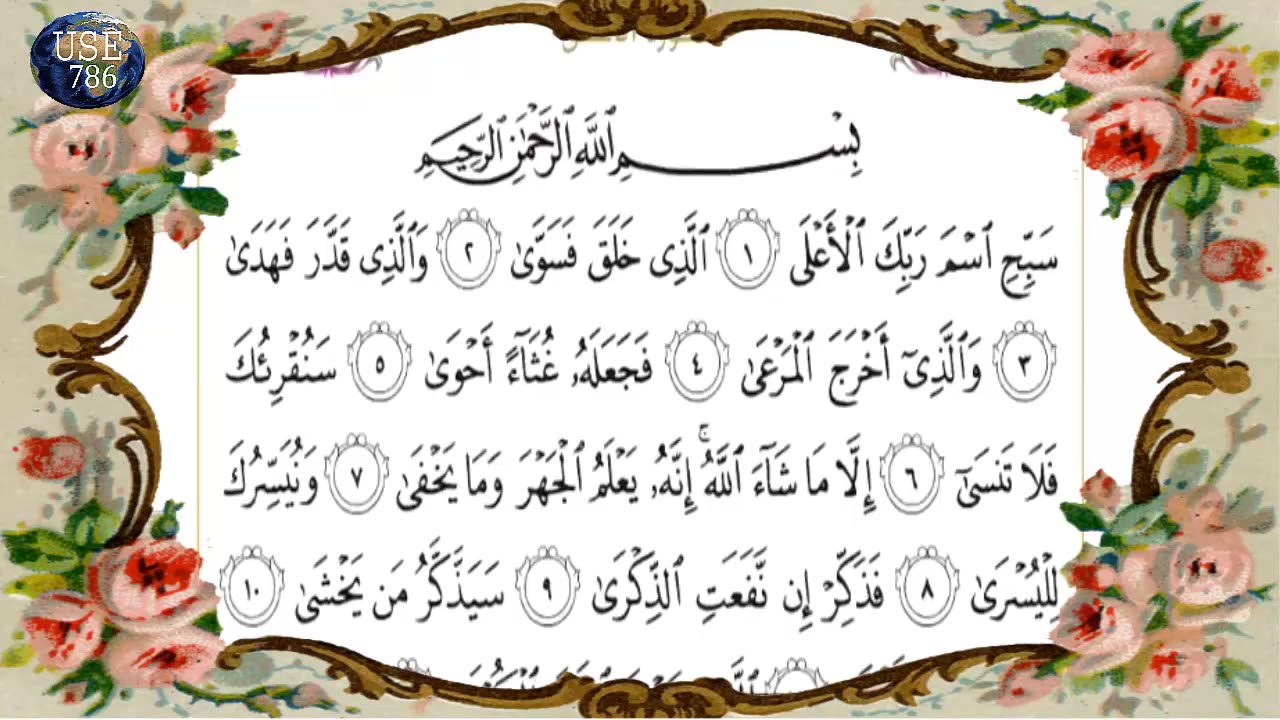 USE
786
بِسْمِ ٱللَّهِ ٱلرَّحْمَٰنِ ٱلرَّحِيمِ
سَبِّحِ ٱسْمَ رَبِّكَ ٱلْأَعْلَى ١ ٱلَّذِى خَلَقَ فَسَوَّىٰ ٢ وَٱلَّذِى قَدَّرَ فَهَدَىٰ
٣ وَٱلَّذِىٓ أَخْرَجَ ٱلْمَرْعَىٰ ٤ فَجَعَلَهُۥ غُثَآءً أَحْوَىٰ ٥ سَنُقْرِئُكَ
فَلَا تَنسَىٰٓ ٦ إِلَّا مَا شَآءَ ٱللَّهُ ۚ إِنَّهُۥ يَعْلَمُ ٱلْجَهْرَ وَمَا يَخْفَىٰ ٧ وَنُيَسِّرُكَ
لِلْيُسْرَىٰ ٨ فَذَكِّرْ إِن نَّفَعَتِ ٱلذِّكْرَىٰ ٩ سَيَذَّكَّرُ مَن يَخْشَىٰ ١٠